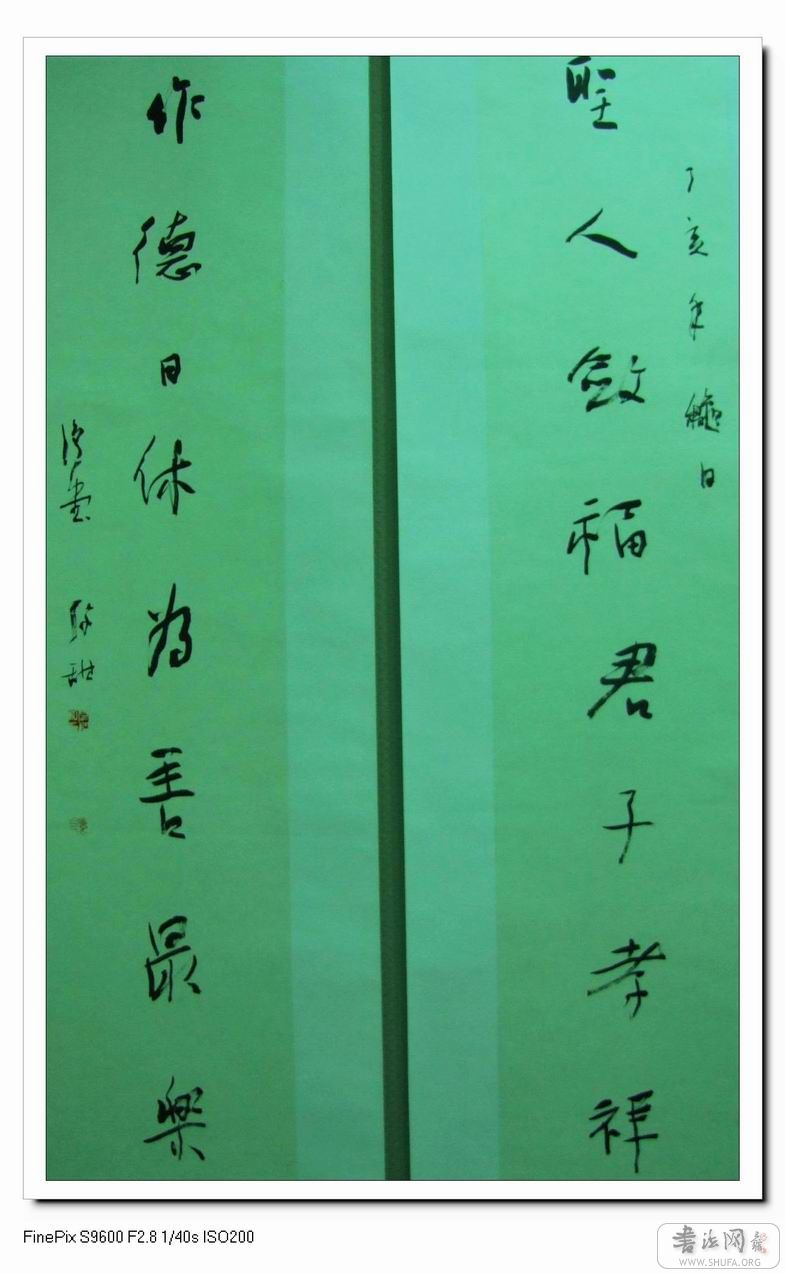 丁亥年 日
聖人斂福君子孝祥
作德日休為善最樂
FinePix S9600 F2.8 1/40s ISO200
書法网
WWW.SHUFA.ORG